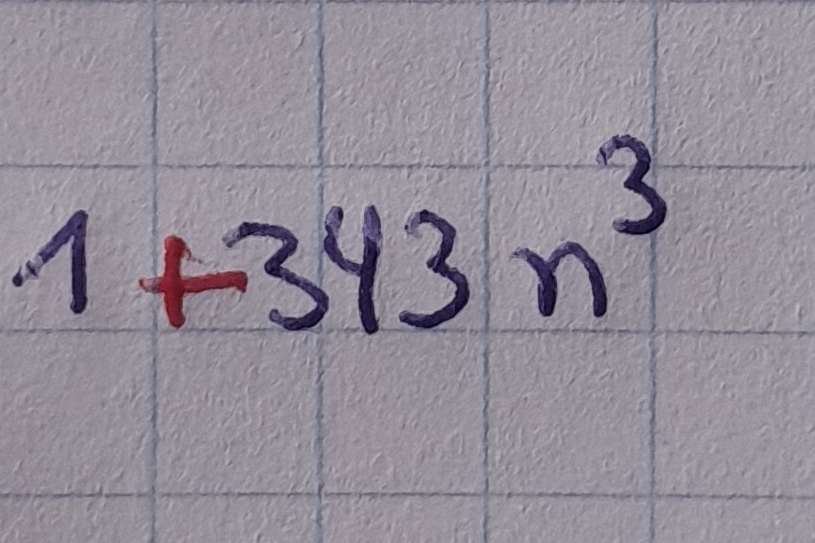 1 + 343 n³